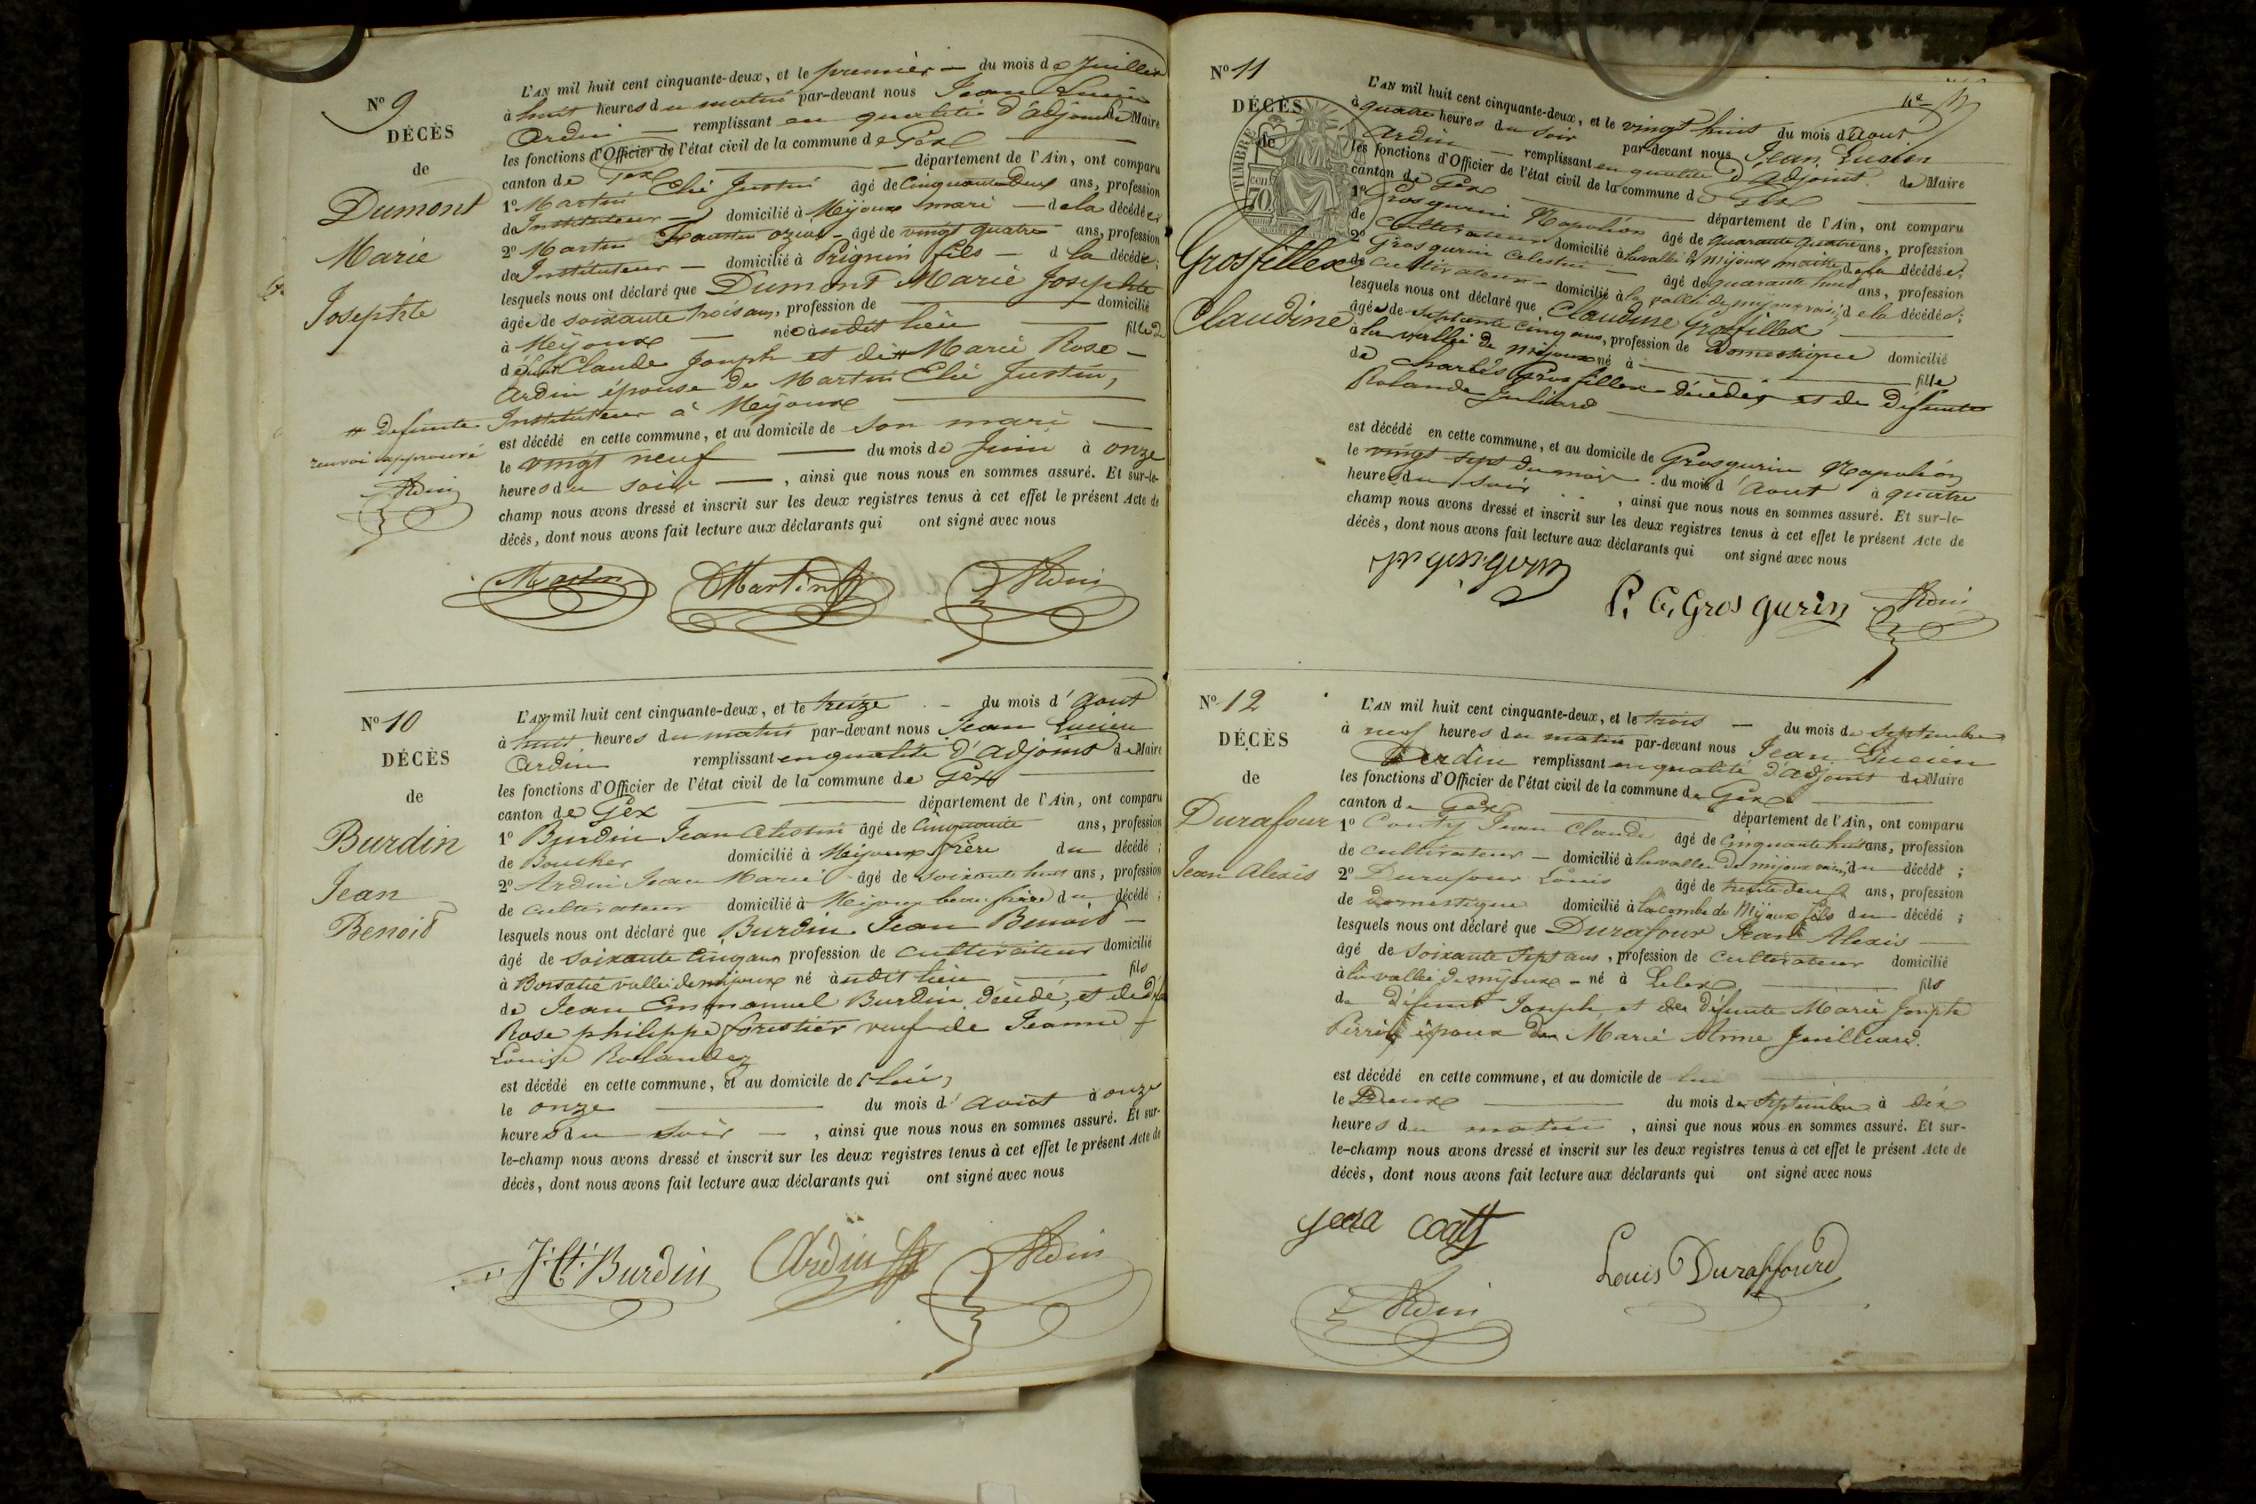 N° 9
DÉCÈS
de
Dumont
Marie
Josephte
L'AN mil huit cent cinquante-deux, et le premier du mois de Juillet
à huit heures du matin par-devant nous Jean Lucien
Ardin remplissant en qualité d'adjoint de Maire
les fonctions d'Officier de l'état civil de la commune de Gex
canton de Gex département de l'Ain, ont comparu
1° Martin Elie Justin âgé de Cinquante Deux ans, profession
de Instituteur domicilié à Mijoux mari de la décédée;
2° Martin âgé de vingt quatre ans, profession
de Instituteur domicilié à Prignin fils d la décédée;
lesquels nous ont déclaré que Dumont Marie Josephte
âgée de soixante trois ans, profession de domicilié
à Mijoux née audit lieu fille de
défunt Claude Joseph et de # Marie Rose
Ardin épouse de Martin Elie Justin,
Instituteur à Mijoux
# defunte
renvoi approuvé
Ardin
est décédé en cette commune, et au domicile de son mari
le vingt neuf du mois de Juin à onze
heures du soir, ainsi que nous nous en sommes assuré. Et sur-le-
champ nous avons dressé et inscrit sur les deux registres tenus à cet effet le présent Acte de
décès, dont nous avons fait lecture aux déclarants qui ont signé avec nous
Martin Martin Ardin
N° 10
DÉCÈS
de
Burdin
Jean
Benoit
L'AN mil huit cent cinquante-deux, et le treize du mois d'aout
à huit heures du matin par-devant nous Jean Lucien
Ardin remplissant en qualité d'adjoint de Maire
les fonctions d'Officier de l'état civil de la commune de Gex
canton de Gex département de l'Ain, ont comparu
1° Burdin Jean Celestin âgé de Cinquante ans, profession
de Boucher domicilié à Mijoux frère du décédé;
2° Ardin Jean Marie âgé de soixante huit ans, profession
de cultivateur domicilié à Mijoux beau frère du décédé;
lesquels nous ont déclaré que Burdin Jean Benoit
âgé de soixante cinq ans profession de cultivateur domicilié
à vallée de mijoux né audit lieu fils
de Jean Emmanuel Burdin décédé, et de
Rose philippe forestier veuf de Jeanne
Louise Rolandez
est décédé en cette commune, et au domicile de lui,
le onze du mois d'aout à onze
heures du soir, ainsi que nous nous en sommes assuré. Et sur-
le-champ nous avons dressé et inscrit sur les deux registres tenus à cet effet le présent Acte de
décès, dont nous avons fait lecture aux déclarants qui ont signé avec nous
J. Ct. Burdin Ardin Ardin
N° 11
DÉCÈS
de
TIMBRE
70
Grosfillex
Claudine
L'AN mil huit cent cinquante-deux, et le vingt huit du mois d'aout
à quatre heures du soir par-devant nous Jean Lucien
Ardin remplissant en qualité d'adjoint de Maire
les fonctions d'Officier de l'état civil de la commune d Gex
canton de Gex département de l'Ain, ont comparu
1° Grosgurin Napoléon âgé de quarante quatre ans, profession
de cultivateur domicilié à la vallée de Mijoux maitre de la décédée;
2° Grosgurin Celestin âgé de quarante huit ans, profession
de cultivateur domicilié à la vallée de mijoux voisin de la décédée;
lesquels nous ont déclaré que Claudine Grosfillex
âgée de septante cinq ans, profession de Domestique domicilié
à la vallée de Mijoux né à fille
de Charles Grosfillex décédé, et de Défunte
Rolande Juliard
est décédé en cette commune, et au domicile de Grosgurin Napoléon
le vingt sept du mois du mois d'aout à quatre
heures du soir, ainsi que nous nous en sommes assuré. Et sur-le-
champ nous avons dressé et inscrit sur les deux registres tenus à cet effet le présent Acte de
décès, dont nous avons fait lecture aux déclarants qui ont signé avec nous
P. C. Gros gurin Ardin
N° 12
DÉCÈS
de
Durafour
Jean Alexis
L'AN mil huit cent cinquante-deux, et le trois du mois de septembre
à neuf heures du matin par-devant nous Jean Lucien
Ardin remplissant en qualité d'adjoint de Maire
les fonctions d'Officier de l'état civil de la commune de Gex
canton de Gex département de l'Ain, ont comparu
1° Couty Jean Claude âgé de Cinquante huit ans, profession
de cultivateur domicilié à la vallée de mijoux voisin du décédé;
2° Durafour Louis âgé de trente deux ans, profession
de Domestique domicilié à la combe de Mijoux fils du décédé;
lesquels nous ont déclaré que Durafour Jean Alexis
âgé de soixante sept ans, profession de cultivateur domicilié
à la vallée de mijoux né à Lelex fils
de Défunt Joseph et de défunte Marie Josephte
époux de Marie Anne Juilliard.
est décédé en cette commune, et au domicile de lui
le Deux du mois de septembre à dix
heures du matin, ainsi que nous nous en sommes assuré. Et sur-
le-champ nous avons dressé et inscrit sur les deux registres tenus à cet effet le présent Acte de
décès, dont nous avons fait lecture aux déclarants qui ont signé avec nous
Louis Duraffourd
Ardin